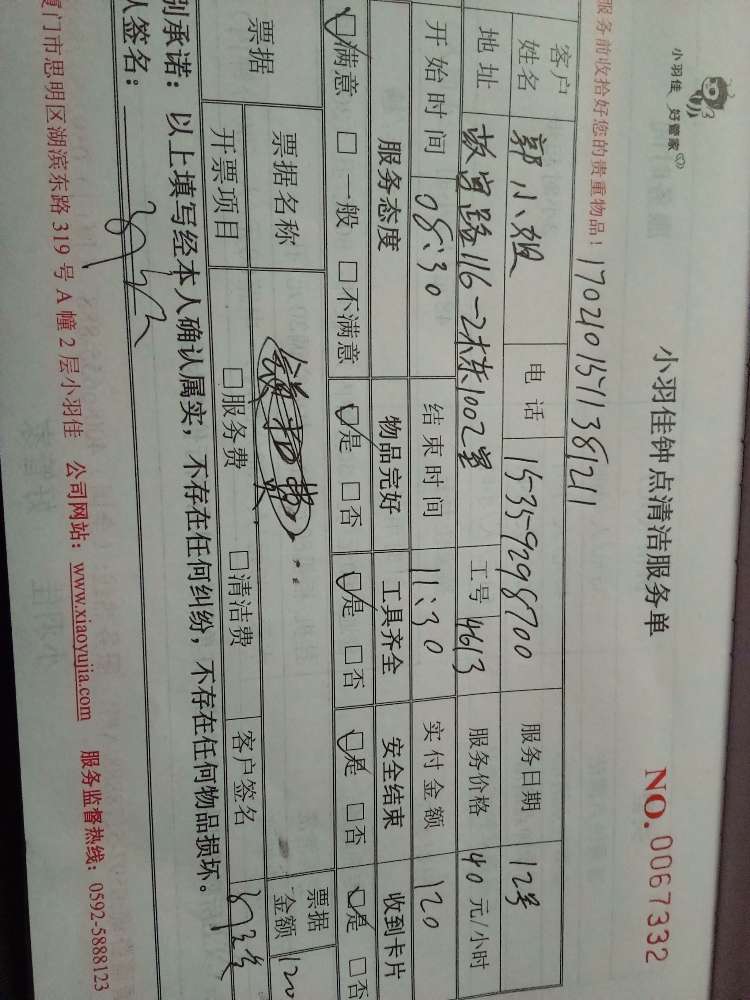 小羽佳 好管家
小羽佳钟点清洁服务单
NO. 0067332
服务前收拾好您的贵重物品！
客户姓名 郭小姐 电话 15359298700 服务日期 12号
地址 116-2 1002室 工号 4613 服务价格 40 元/小时
开始时间 08:30 结束时间 11:30 实付金额 120
服务态度 物品完好 工具齐全 安全结束 收到卡片
□满意 □一般 □不满意 □是 □否 □是 □否 □是 □否 □是 □否
票据 票据名称 票据金额 120
开票项目 □服务费 □清洁费 客户签名
别承诺：以上填写经本人确认属实，不存在任何纠纷，不存在任何物品损坏。
人签名：
厦门市思明区湖滨东路319号A幢2层小羽佳 公司网站：www.xiaoyujia.com 服务监督热线：0592-5888123